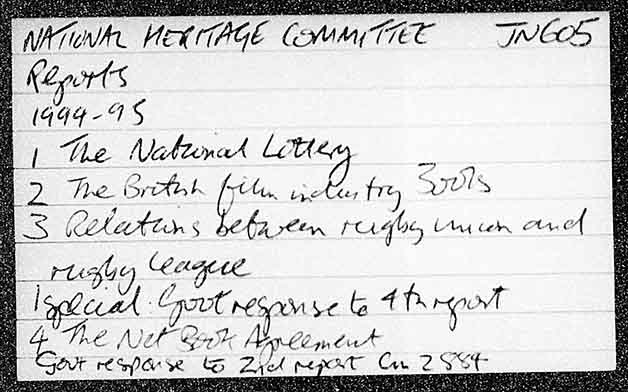 NATIONAL HERITAGE COMMITTEE JN605
Reports
1994-95
1 The National Lottery
2 The British film industry 3 vols
3 Relations between rugby union and
rugby league
1 special. Govt response to 4th report
4 The Net Book Agreement
Govt response to 2nd report Cm 2884